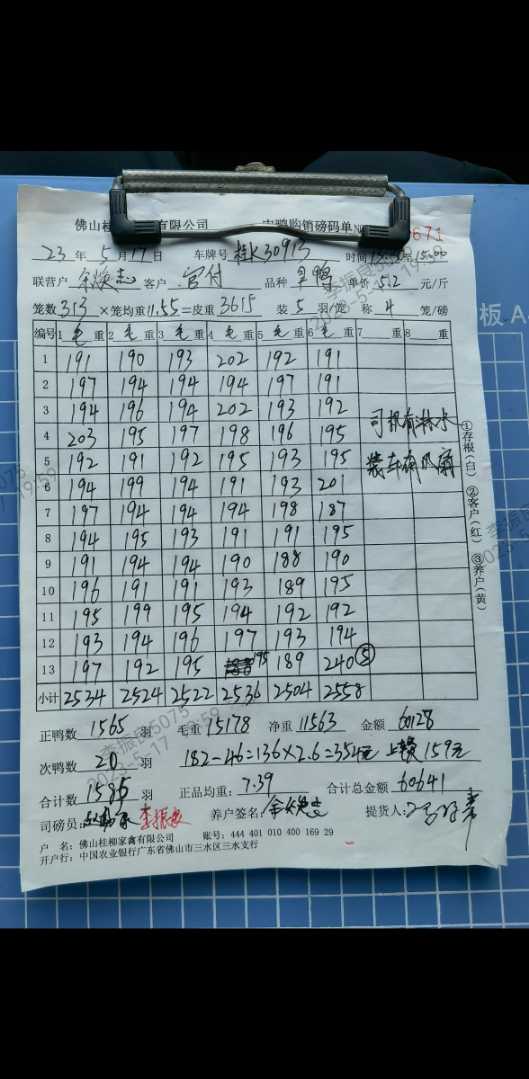 佛山桂柳 有限公司 肉鸭购销磅码单 No 671
23 年 5 月 17 日 车牌号 桂K30913 时间
联营户 余焕志 客户 官付 品种 单价 5.2 元/斤
笼数 313 ×笼均重 11.55 =皮重 3615 装 5 羽/笼 称 4 笼/磅
编号 1 毛 重 2 毛 重 3 毛 重 4 毛 重 5 毛 重 6 毛 重 7 重 8 重
1 191 190 193 202 192 191
2 197 194 194 194 197 191
3 194 196 194 202 193 192
4 203 195 197 198 196 195
5 192 191 192 195 193 195
6 194 199 194 191 193 201
7 197 194 194 194 198 187
8 194 195 193 191 191 195
9 191 194 194 190 188 190
10 196 191 191 193 189 195
11 195 199 195 194 192 192
12 193 194 196 197 193 194
13 197 192 195 195 189 240 ⑤
小计 2534 2524 2522 2536 2504 2558
司机有淋水
装车有风扇
①存根(白) ②客户(红) ③养户(黄)
正鸭数 1565 羽 毛重 15178 净重 11563 金额 60128
次鸭数 20 羽 182-46=136×2.6=354元 159元
合计数 1585 羽 正品均重: 7.39 合计总金额 60641
司磅员: 李振良 养户签名: 余焕志 提货人:
户 名: 佛山桂柳家禽有限公司 账号: 444 401 010 400 169 29
开户行: 中国农业银行广东省佛山市三水区三水支行
李振良5075
2023-5-17 19:59
板 A